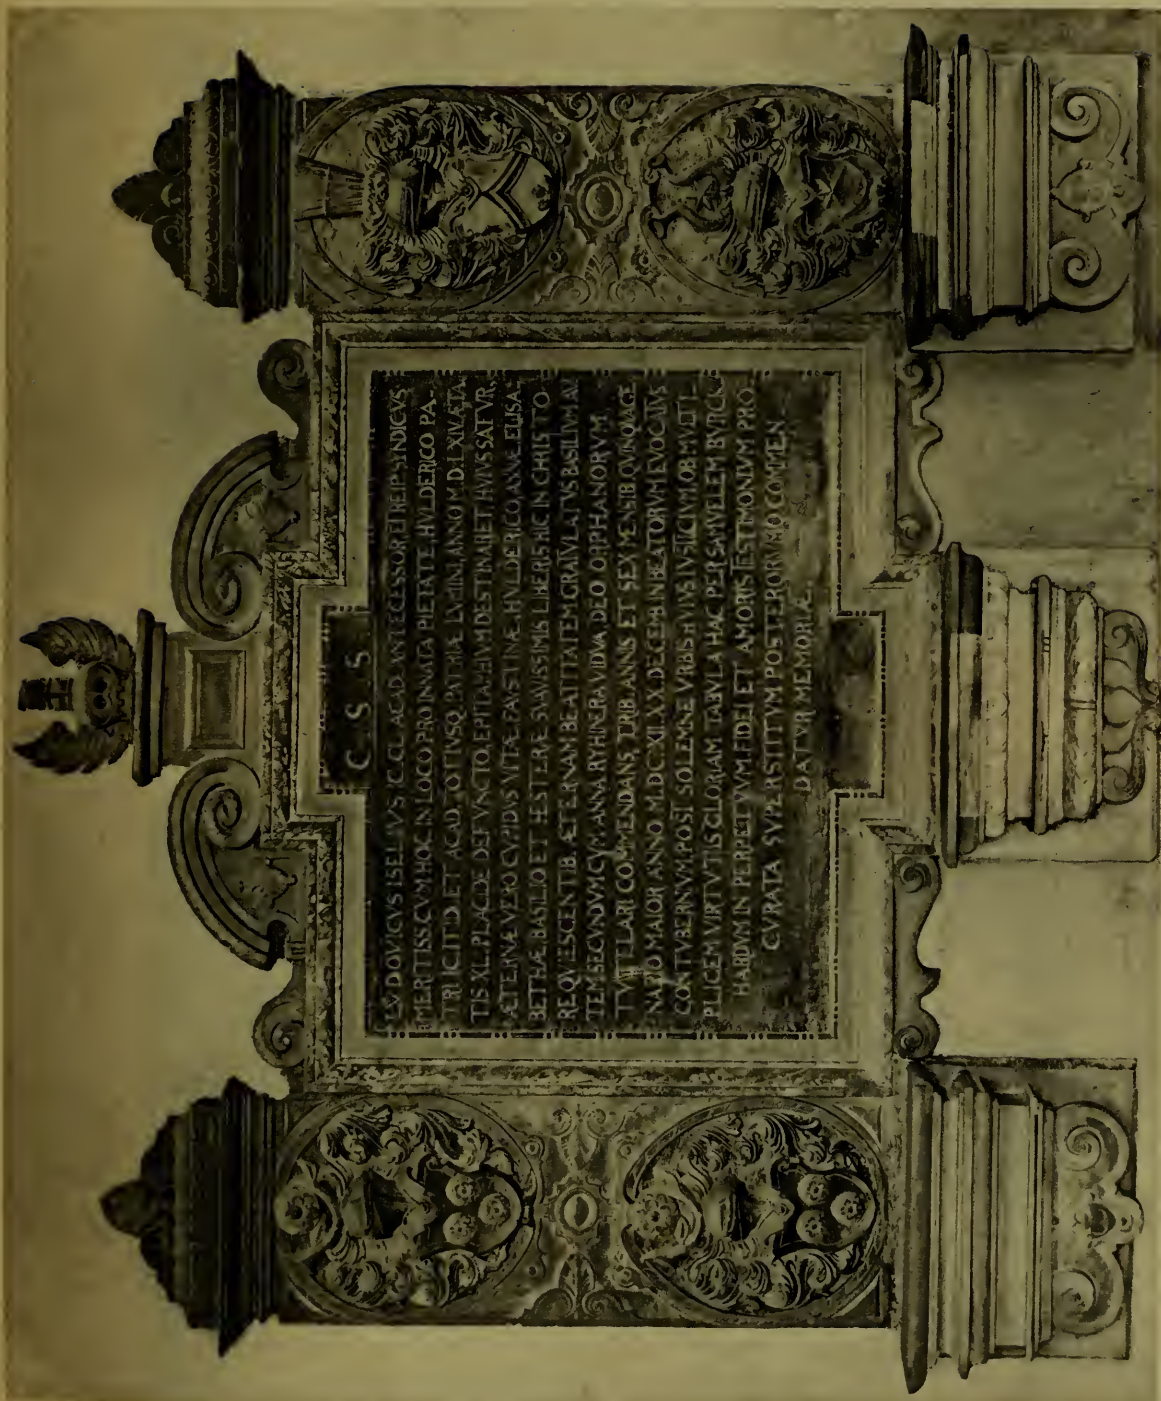 C. S. S.
LVDOVICVS ISELIVS IC. CL. ACAD. ANTECESSOR ET REIP. SYNDICVS
EMERITISS CVM HOC IN LOCO PRO INNATA PIETATE HVLDERICO PA-
TRI IC ITID ET ACAD. TOTIVSQ. PATRIÆ LVMINI ANNO M.D.LXIV ÆTA
TIS XL. PLACIDE DEFVNCTO, EPITAPHIVM DESTINAIIET HVIVS SATVR,
ÆTERNÆ VERO CVPIDVS VITÆ FAVSTINÆ, HVLDERICO ANNÆ, ELISA-
BETHÆ BASILIO ET HESTERÆ SVAVISSIMIS LIBERIS HIC IN CHRISTO
REQVIESCENTIB. ÆTERNAM BEATITATEM GRATVLATVS BASILIVM AV
TEM SECVNDVM CVM ANNA RYHINERA VIDVA DEO ORPHANORVM
TVTELARI COMMENDANS TRIB. ANNIS ET SEX MENSIB. QVINQVAGE
NARIO MAIOR ANNO M.DC.XII. XX. DECEMB. IN BEATORVM EVOCATVS
CONTVBERNIVM, POST SOLEMNE VRBIS HVIVS IVSTICIVM OB MVLTI-
PLICEM VIRTVTIS GLORIAM TABVLA HAC PER SAMVELEM BVRCK-
HARDVM IN PERPETVVM FIDEI ET AMORIS TESTIMONIVM PRO-
CVRATA SVÆ RESTITVTVM POSTERORVMQ COMMEN
DATVR MEMORIÆ.